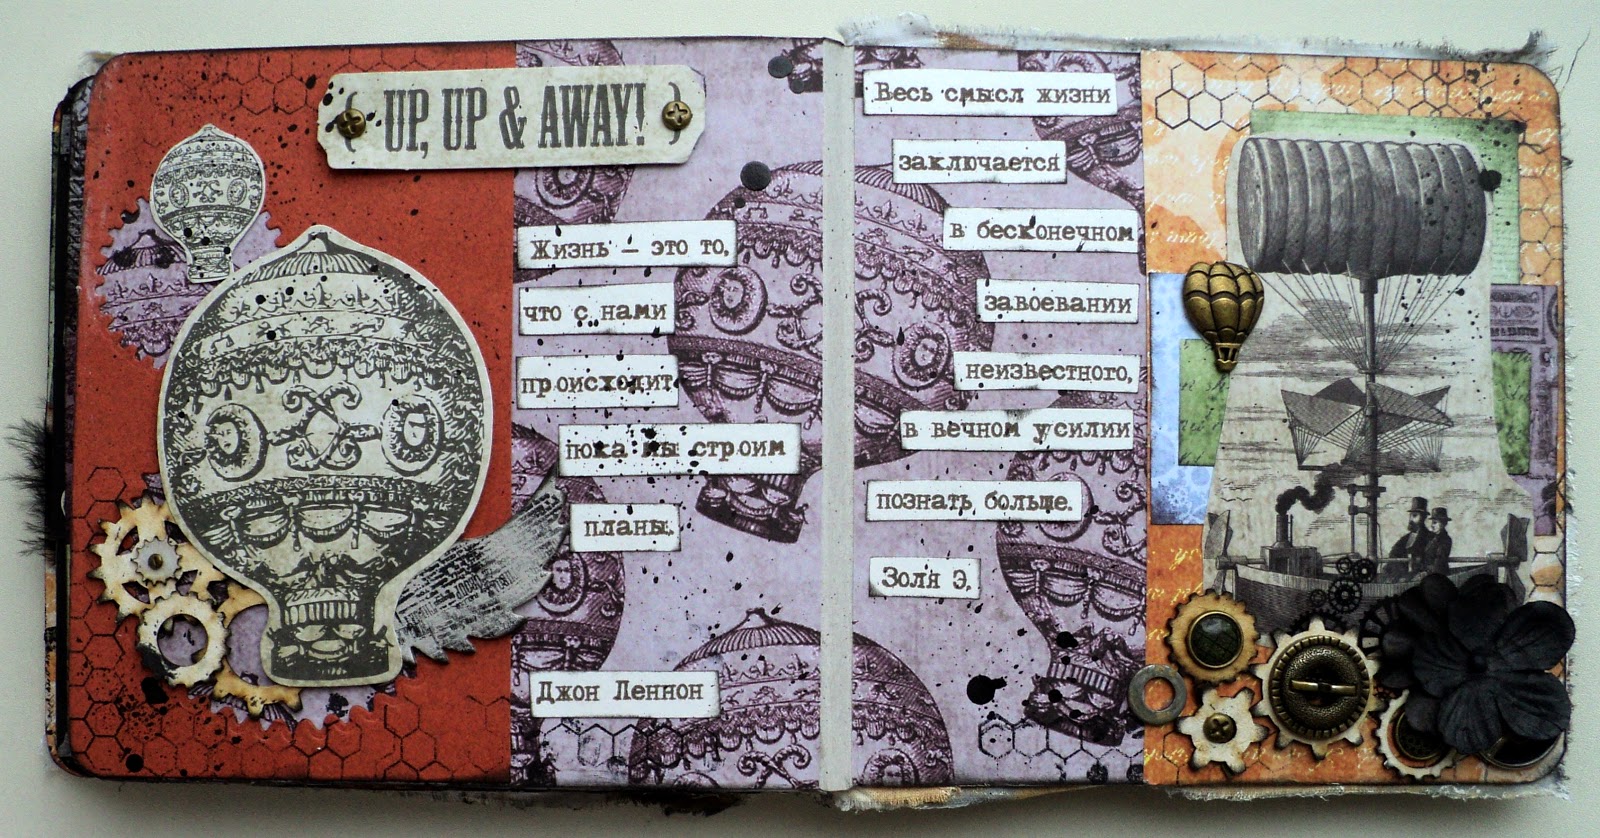 UP, UP & AWAY!
Жизнь – это то,
что с нами
происходит
пока мы строим
планы.
Джон Леннон
Весь смысл жизни
заключается
в бесконечном
завоевании
неизвестного,
в вечном усилии
познать больше.
Золя Э.